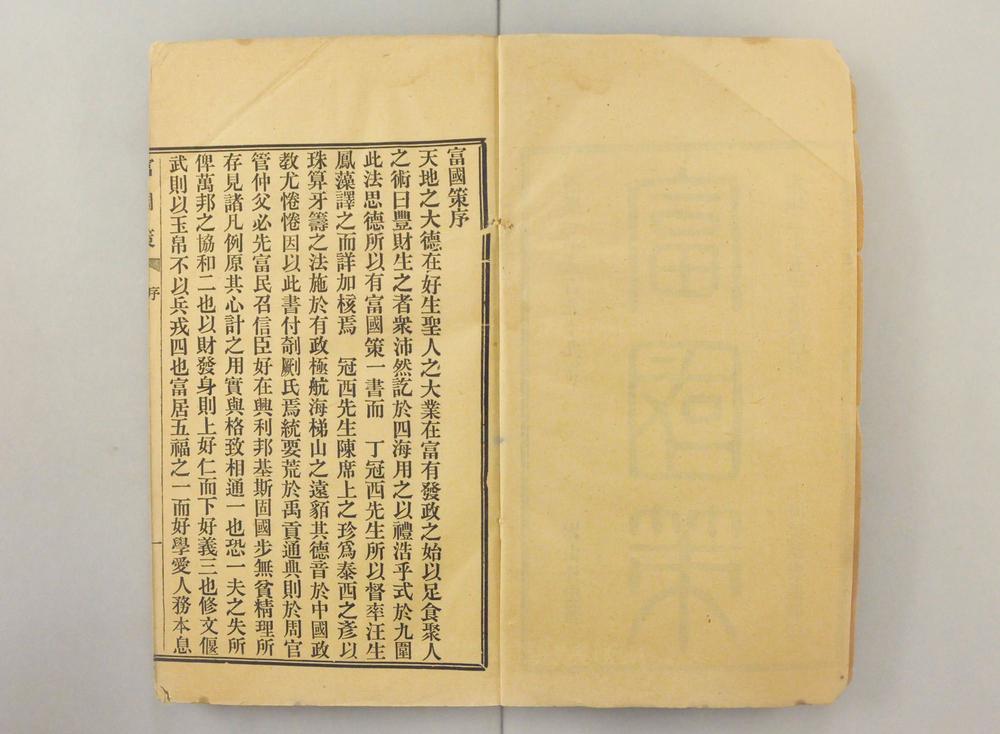 富國策序
天地之大德在好生聖人之大業在富有發政之始以足食聚人
之術曰豐財生之者衆沛然訖於四海用之以禮浩乎式於九圍
此法思德所以有富國策一書而　丁冠西先生所以督率汪生
鳳藻譯之而詳加核焉　冠西先生陳席上之珍為泰西之彥以
珠算牙籌之法施於有政極航海梯山之遠貊其德音於中國政
教尤惓惓因以此書付剞劂氏焉統要荒於禹貢通典則於周官
管仲父必先富民召信臣好在興利邦基斯固國步無貧精理所
存見諸凡例原其心計之用實與格致相通一也恐一夫之失所
俾萬邦之協和二也以財發身則上好仁而下好義三也修文偃
武則以玉帛不以兵戎四也富居五福之一而好學愛人務本息
富國策
序
一
富國策